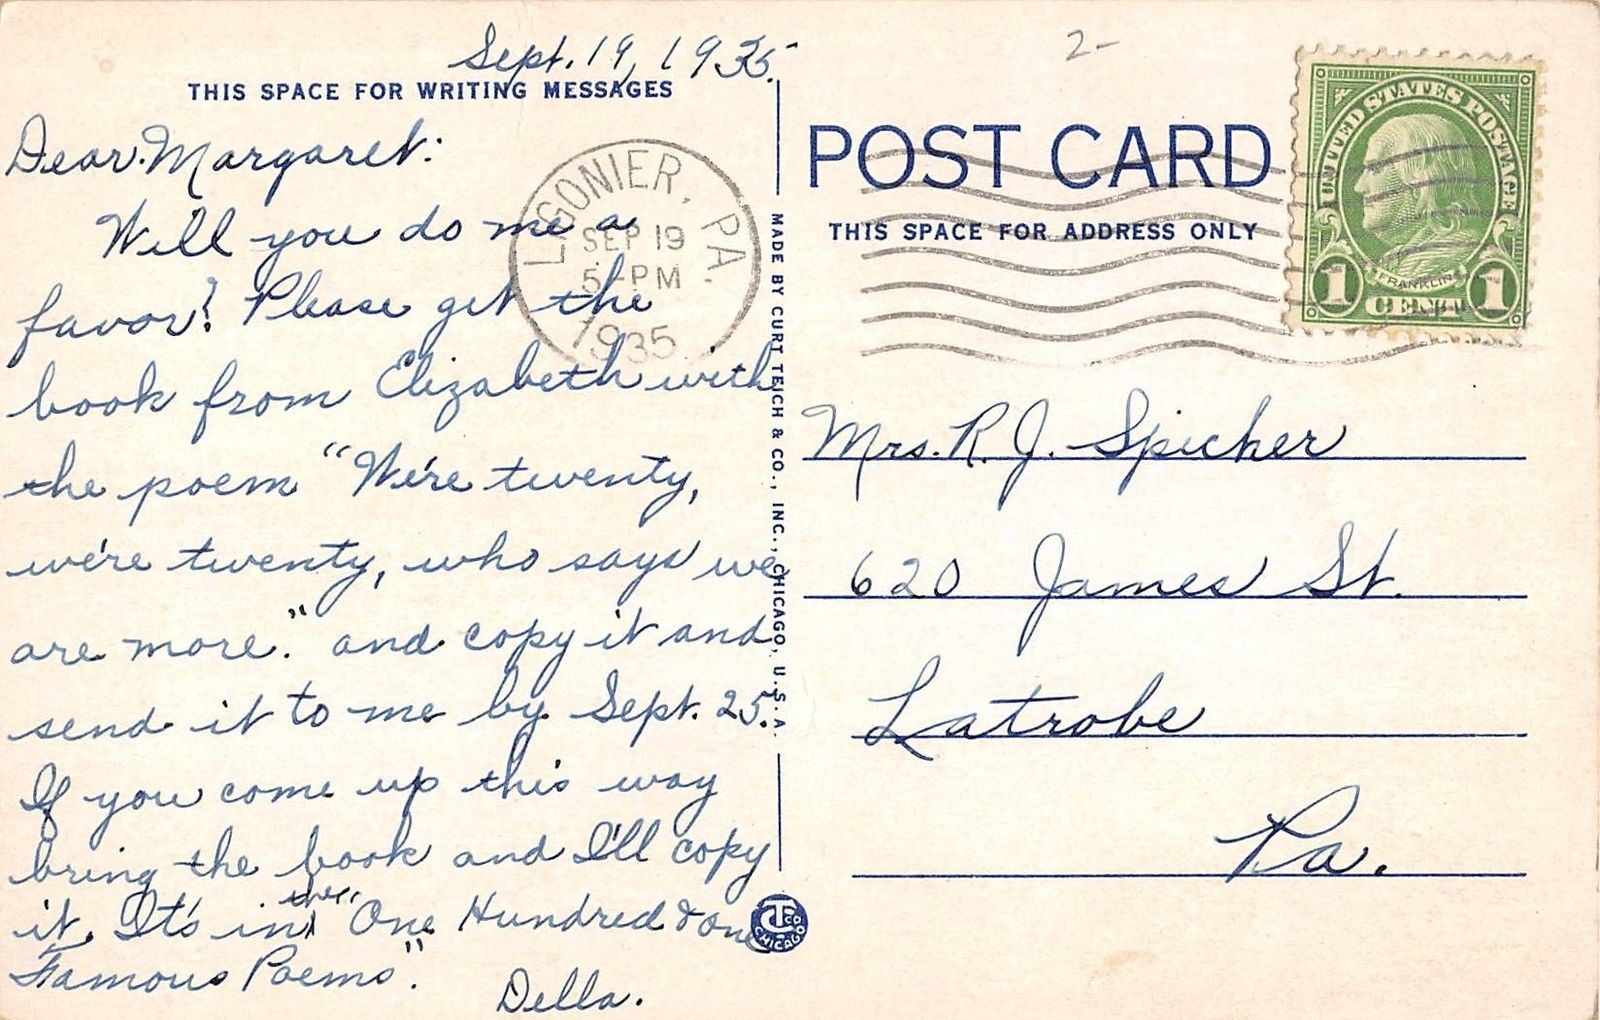 Sept. 19, 1935.
THIS SPACE FOR WRITING MESSAGES
Dear Margaret:
Will you do me a
favor? Please get the
book from Elizabeth with
the poem "We're twenty,
we're twenty, who says we
are more." and copy it and
send it to me by Sept. 25.
If you come up this way
bring the book and I'll copy
it. It's in the "One Hundred & one
Famous Poems".
Della.
LIGONIER, PA.
SEP 19
5-PM
1935
MADE BY CURT TEICH & CO., INC., CHICAGO, U.S.A.
CT CO
CHICAGO
2-
POST CARD
THIS SPACE FOR ADDRESS ONLY
UNITED STATES POSTAGE
FRANKLIN
1 CENT 1
Mrs. R. J. Spicher
620 James St.
Latrobe
Pa.